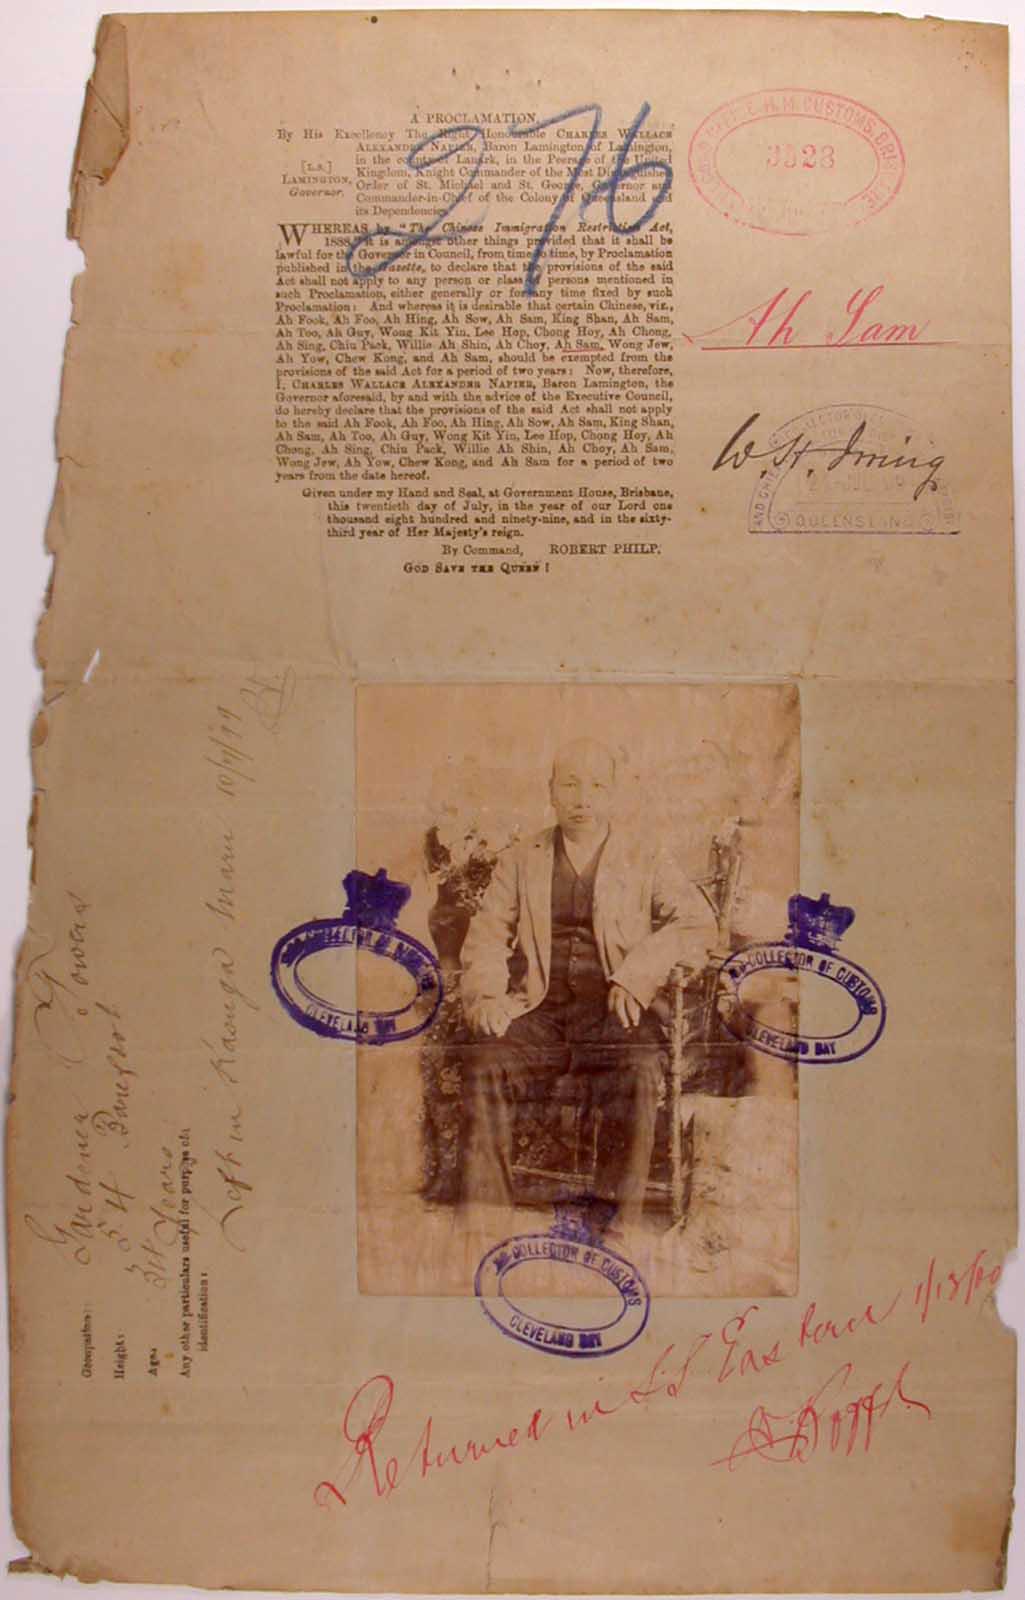 A PROCLAMATION,
By His Excellency The Right Honourable CHARLES WALLACE
ALEXANDER NAPIER, Baron Lamington of Lamington,
in the county of Lanark, in the Peerage of the United
Kingdom, Knight Commander of the Most Distinguished
Order of St. Michael and St. George, Governor and
Commander-in-Chief of the Colony of Queensland and
its Dependencies.
[L.S.]
LAMINGTON,
Governor.
WHEREAS by "The Chinese Immigration Restriction Act,
1888," it is amongst other things provided that it shall be
lawful for the Governor in Council, from time to time, by Proclamation
published in the Gazette, to declare that the provisions of the said
Act shall not apply to any person or class of persons mentioned in
such Proclamation, either generally or for any time fixed by such
Proclamation: And whereas it is desirable that certain Chinese, viz.,
Ah Fook, Ah Foo, Ah Hing, Ah Sow, Ah Sam, King Shan, Ah Sam,
Ah Too, Ah Guy, Wong Kit Yin, Lee Hop, Chong Hoy, Ah Chong,
Ah Sing, Chiu Pack, Willie Ah Shin, Ah Choy, Ah Sam, Wong Jew,
Ah Yow, Chew Kong, and Ah Sam, should be exempted from the
provisions of the said Act for a period of two years: Now, therefore,
I, CHARLES WALLACE ALEXANDER NAPIER, Baron Lamington, the
Governor aforesaid, by and with the advice of the Executive Council,
do hereby declare that the provisions of the said Act shall not apply
to the said Ah Fook, Ah Foo, Ah Hing, Ah Sow, Ah Sam, King Shan,
Ah Sam, Ah Too, Ah Guy, Wong Kit Yin, Lee Hop, Chong Hoy, Ah
Chong, Ah Sing, Chiu Pack, Willie Ah Shin, Ah Choy, Ah Sam,
Wong Jew, Ah Yow, Chew Kong, and Ah Sam for a period of two
years from the date hereof.
Given under my Hand and Seal, at Government House, Brisbane,
this twentieth day of July, in the year of our Lord one
thousand eight hundred and ninety-nine, and in the sixty-
third year of Her Majesty's reign.
By Command, ROBERT PHILP.
GOD SAVE THE QUEEN!
276
H.M. CUSTOMS, BRISBANE
Ah Sam
W. H. Irving
QUEENSLAND
Occupation: Gardener
Height: 5 4
Age: 34 Years
Any other particulars useful for purposes of
identification:
Left in Kasuga Maru 10/9/99
COLLECTOR OF CUSTOMS
CLEVELAND BAY
COLLECTOR OF CUSTOMS
CLEVELAND BAY
COLLECTOR OF CUSTOMS
CLEVELAND BAY
Returned in S.S. Eastern